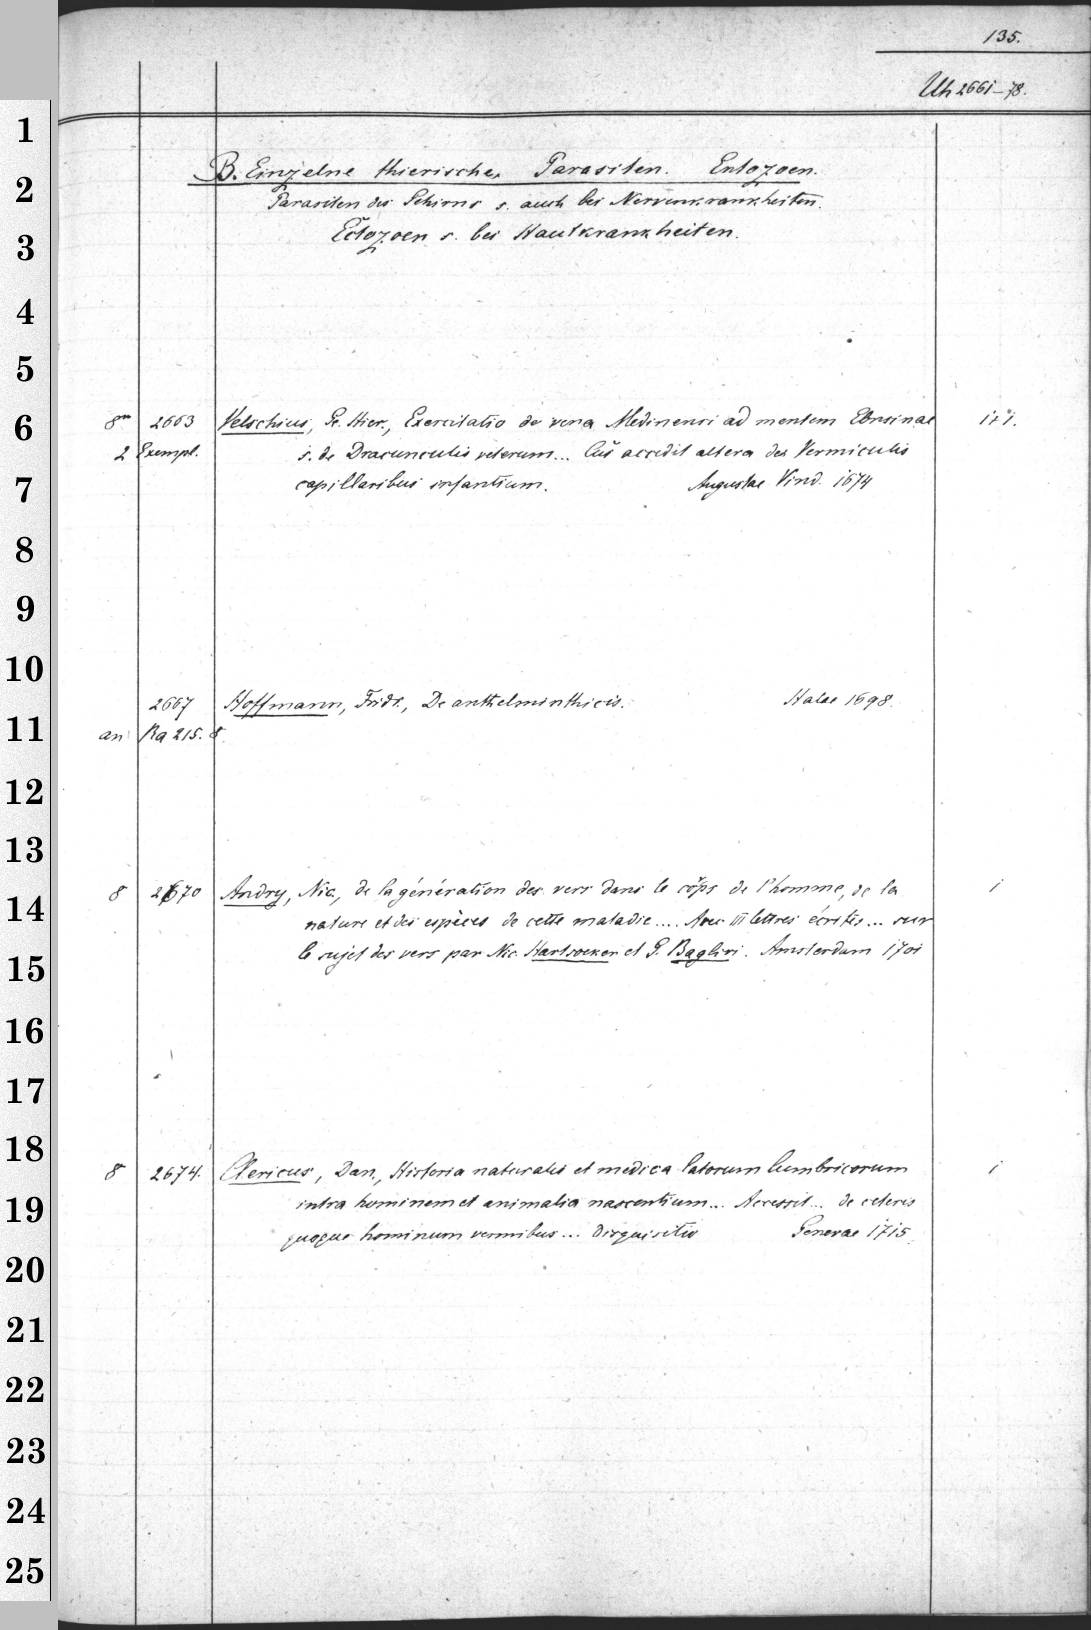 135.
Uh 2661-78.
1
B. Einzelne thierische Parasiten. Entozoen.
2
Parasiten des Gehirns s. auch bei Nervenkrankheiten.
3
Ectozoen s. bei Hautkrankheiten.
4
5
6
8° 2663 Velschius, G. Hier., Exercitatio de vena Medinensi ad mentem Ebnsinae 1+1.
2 Exempl. s. de Dracunculis veterum... Cui accedit altera de Vermiculis
7
capillaribus infantium. Augustae Vind. 1674
8
9
10
2667 Hoffmann, Fridr., De anthelminthicis. Halae 1698.
11
an Ra 215. 8.
12
13
8 2670 Andry, Nic., de la génération des vers dans le corps de l'homme, de la 1
14
nature et des espèces de cette maladie.... Avec III lettres écrites... sur
15
le sujet des vers par Nic. Hartsoeker et G. Baglivi. Amsterdam 1701
16
17
18
8 2674. Clericus, Dan., Historia naturalis et medica latorum lumbricorum 1
19
intra hominem et animalia nascentium... Accessit... de ceteris
quoque hominum vermibus... disquisitio Genevae 1715.
20
21
22
23
24
25